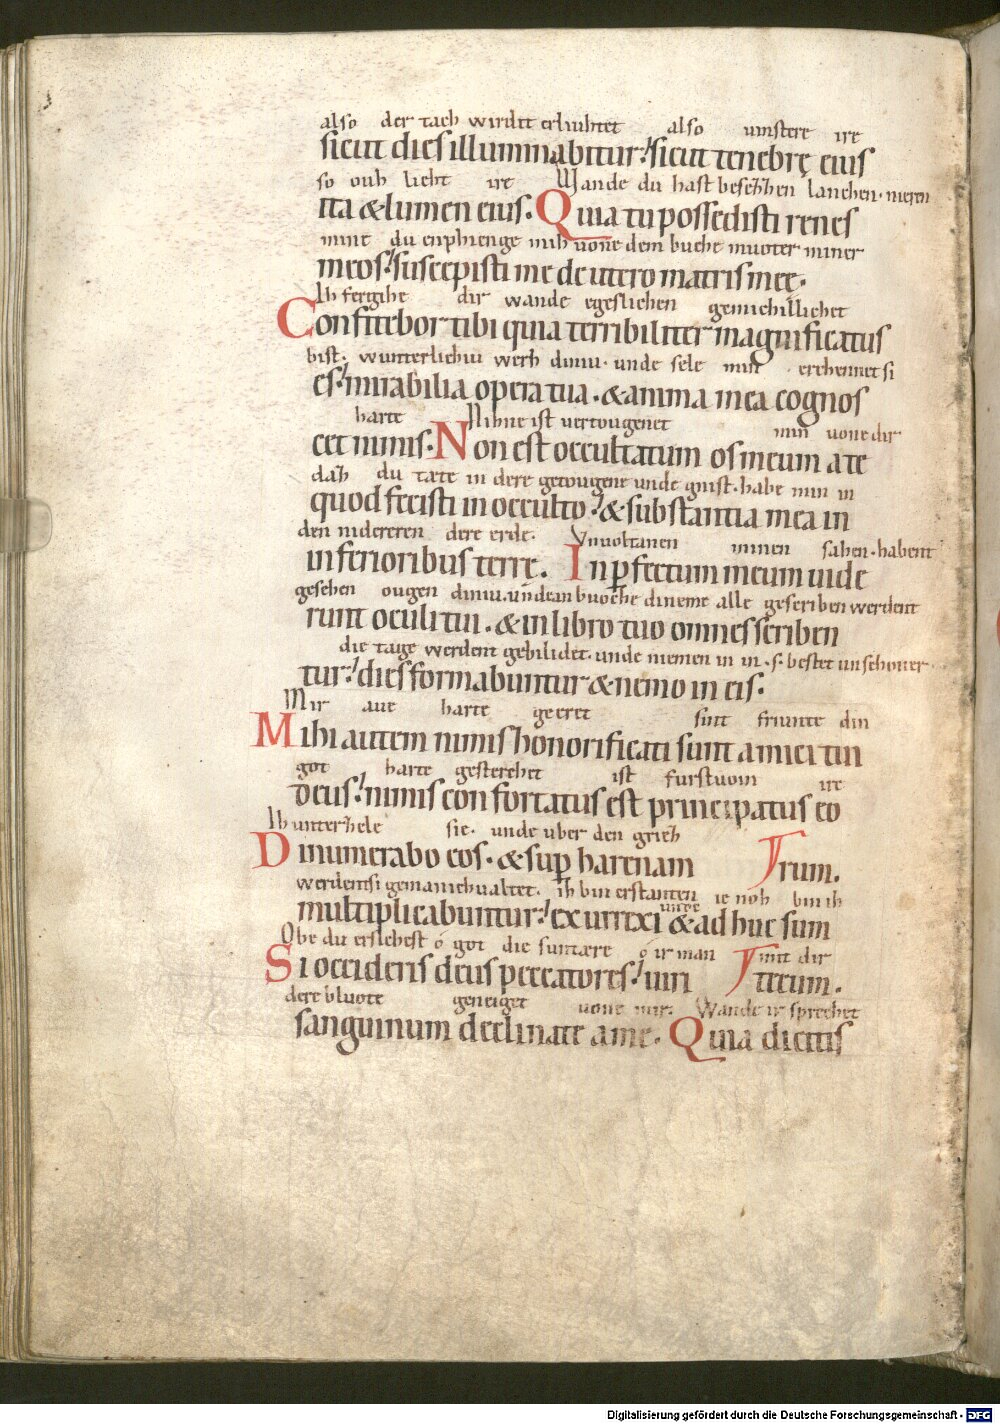 also der tach wirdit erliuhtet also uinstere ire
sicut dies illuminabitur: sicut tenebrę eius
so ouh lieht ire Wande du hast besezzen lanchen. nieren
ita & lumen eius. Quia tu possedisti renes
mine du enphienge mih uone dem buche muoter miner
meos: suscepisti me de utero matris meę.
Ih fergihe dir wande egeslichen gemichillichet
Confitebor tibi quia terribiliter magnificatus
bist. wunterlichiu werh diniu. unde sele min erchennet si
es: mirabilia opera tua. & anima mea cognos
harte Nihne ist vertougenet min uone dir
cet nimis. Non est occultatum os meum a te
daz du tæte in dere getougene unde gnist. habe min in
quod fecisti in occulto: & substantia mea in
den nidereren dere erde. Vnuoltanen minen sahen. habent
inferioribus terrę. Inp̱fectum meum uide
gesehen ougen diniu. unde in buoche dineme alle gescriben werdent
runt oculi tui. & in libro tuo omnes scriben
die tage werdent gebilidet. unde niemen in in .s. bestet unschoner.
tur: dies formabuntur & nemo in eis.
Mir aue harte geeret sint friunte din
Mihi autem nimis honorificati sunt amici tui
got harte gesterchet ist furstuom ire
deus: nimis confortatus est principatus eo
Ih unterzele sie. unde uber den griez
Dinumerabo eos. & sup̱ harenam rum.
werdent si gemanichualtet. ih bin erstanten unde ie noh bin ih
multiplicabuntur: exurrexi & adhuc sum
Obe du erslehest o got die suntære o ir man mit dir
Si occideris deus peccatores: uiri tecum.
dere bluote geneiget uone mir. Wande ir sprechet
sanguinum declinate a me. Quia dicitis
Digitalisierung gefördert durch die Deutsche Forschungsgemeinschaft - DFG